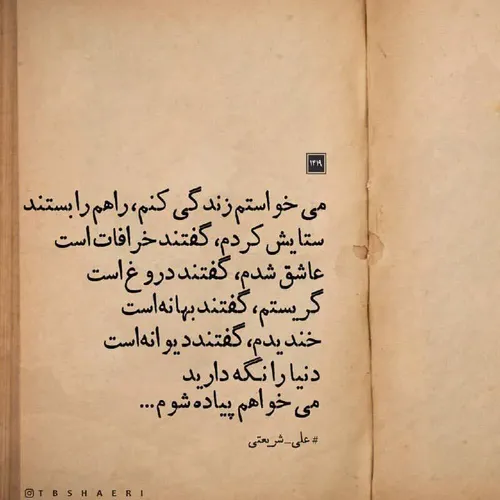 ۱۳۱۹
می خواستم زندگی کنم، راهم را بستند
ستایش کردم، گفتند خرافات است
عاشق شدم، گفتند دروغ است
گریستم، گفتند بهانه است
خندیدم، گفتند دیوانه است
دنیا را نگه دارید
می خواهم پیاده شوم...
#علی_شریعتی
TBSHAERI